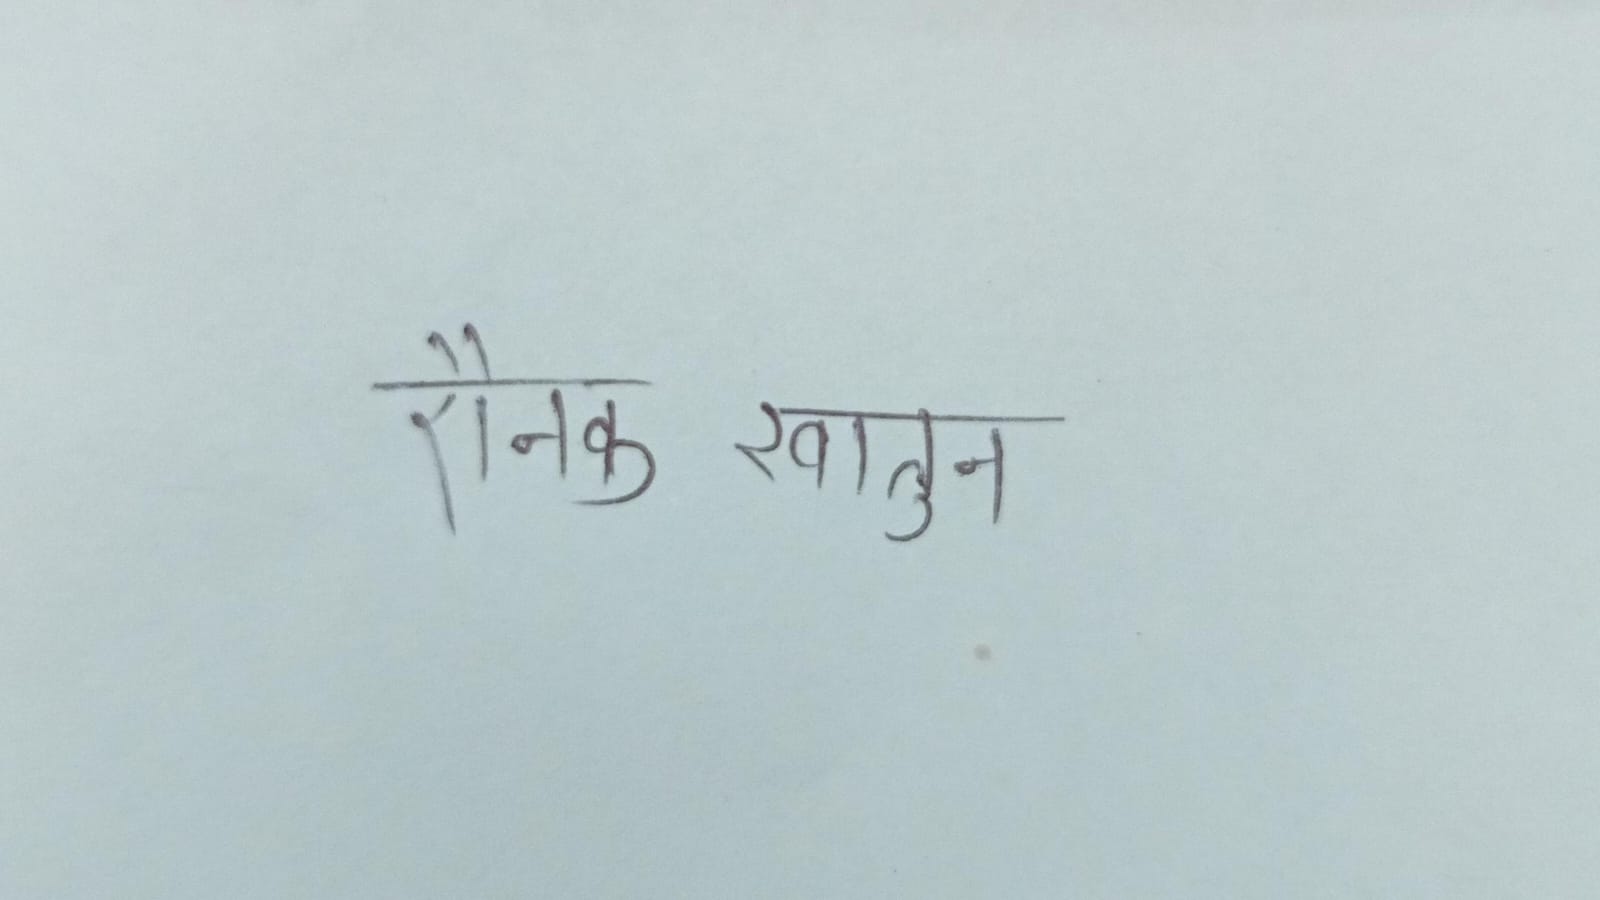 रौनक खातुन